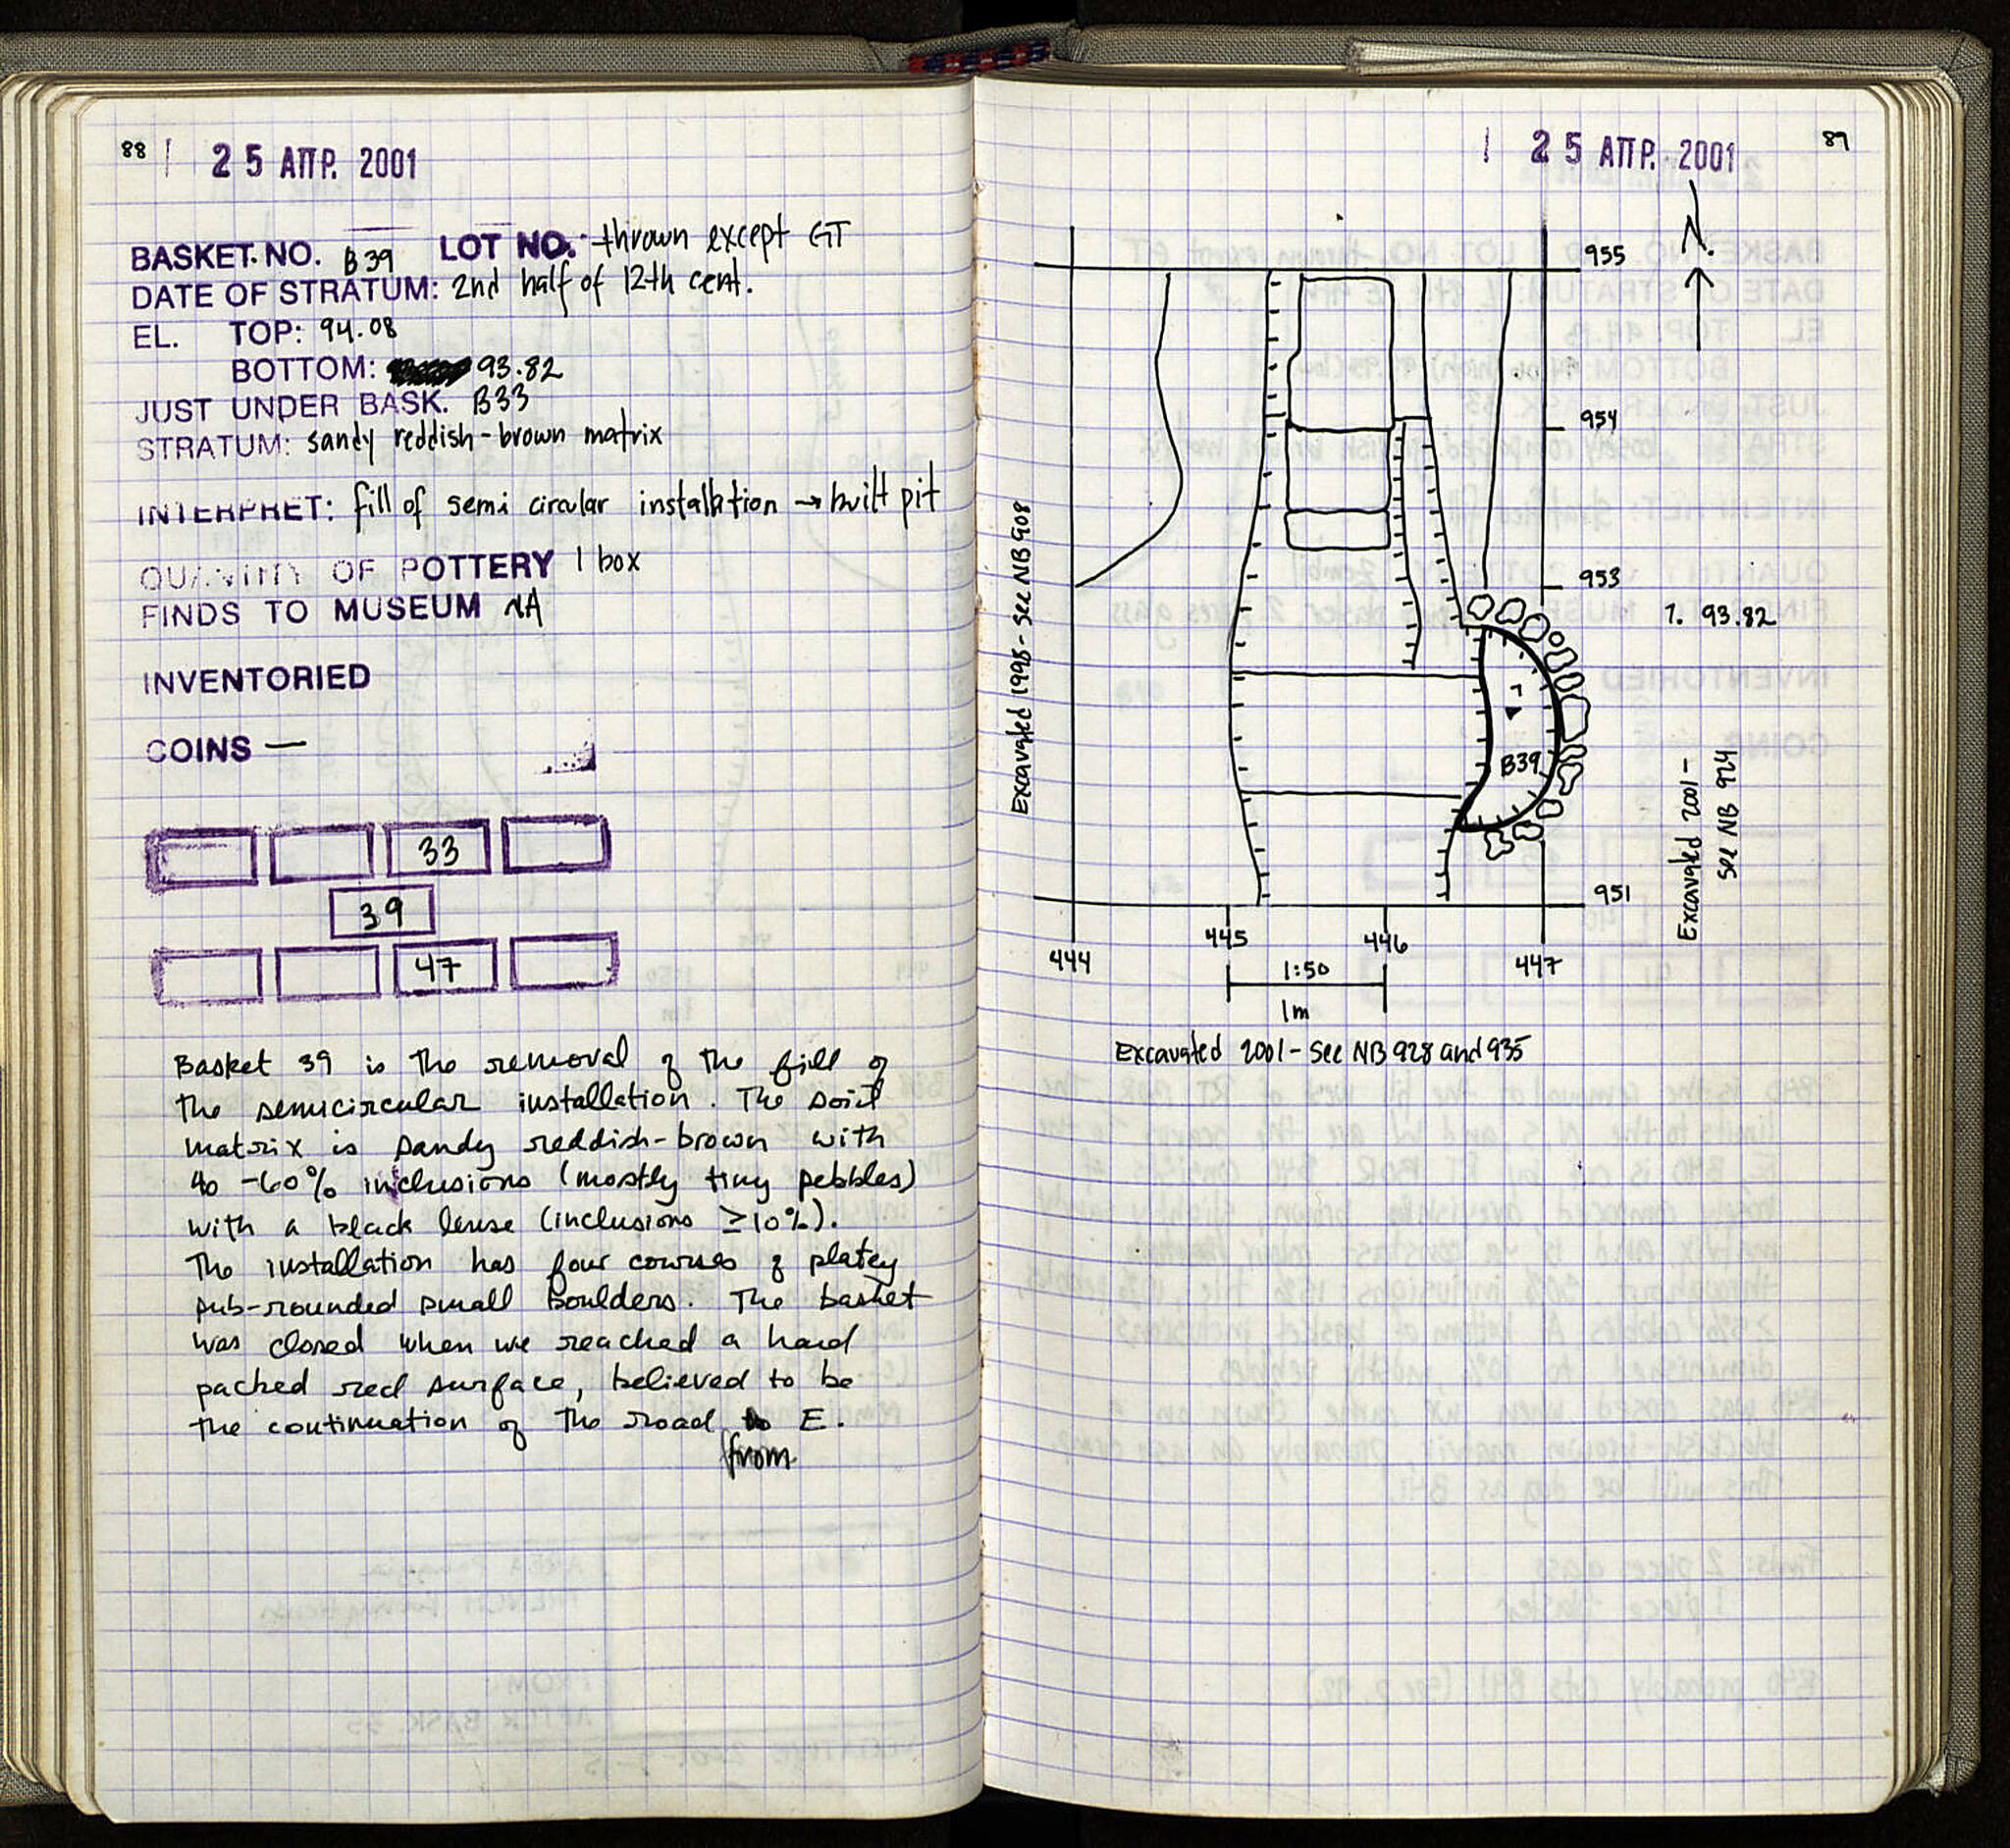 88
25 ΑΠΡ. 2001
BASKET NO. B39 LOT NO. thrown except GT
DATE OF STRATUM: 2nd half of 12th cent.
EL. TOP: 94.08
BOTTOM: 93.82
JUST UNDER BASK. B33
STRATUM: sandy reddish-brown matrix
INTERPRET: fill of semi circular installation → built pit
QUANTITY OF POTTERY 1 box
FINDS TO MUSEUM NA
INVENTORIED
COINS —
33
39
47
Basket 39 is the removal of the fill of
the semicircular installation. The soil
matrix is sandy reddish-brown with
40-60% inclusions (mostly tiny pebbles)
with a black lense (inclusions ≥10%).
The installation has four courses of platey
sub-rounded small boulders. The basket
was closed when we reached a hard
packed red surface, believed to be
the continuation of the road E.
from
25 ΑΠΡ. 2001
89
N.
955
954
953
1. 93.82
Excavated 1998 - see NB 908
1
B39
Excavated 2001 -
see NB 924
951
445
446
444
447
1:50
1m
Excavated 2001 - See NB 928 and 935